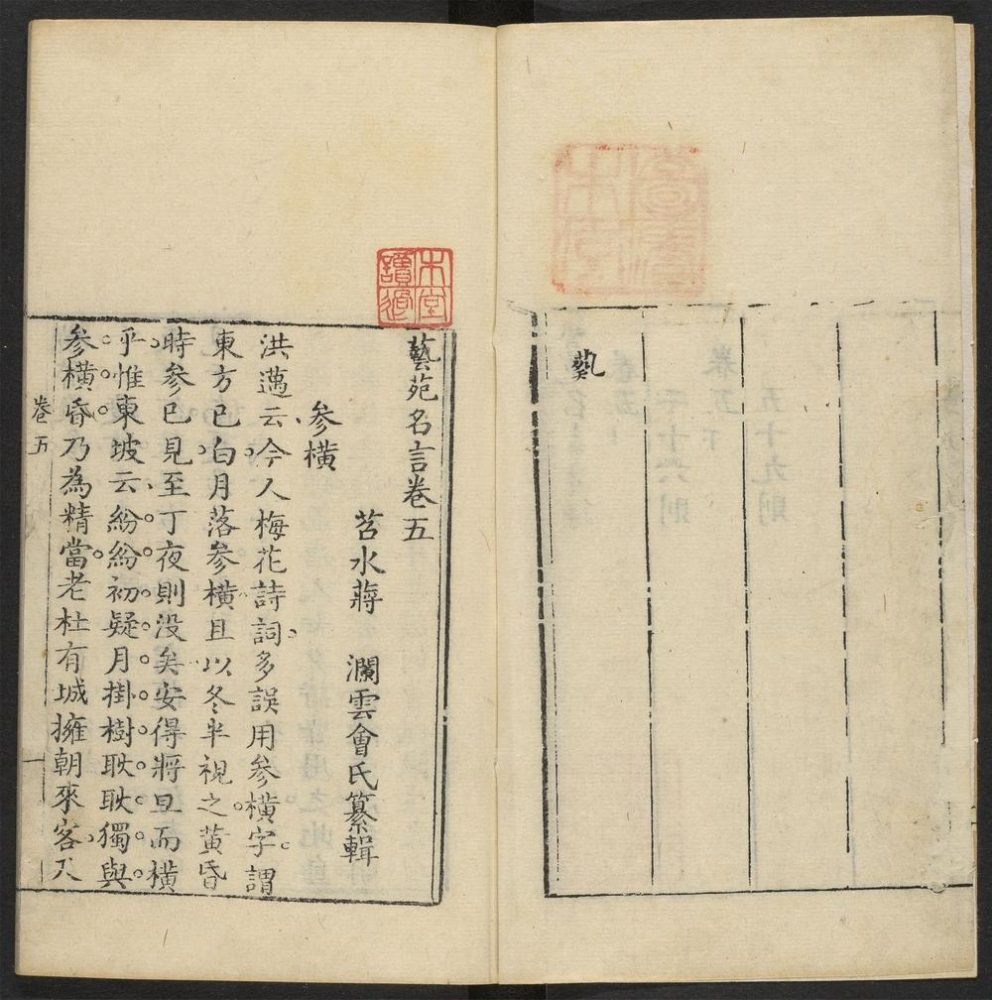 藝
藝苑名言卷五
苕水蔣 瀾雲會氏纂輯
參橫
洪邁云今人梅花詩詞多誤用參橫字謂
東方已白月落參橫且以冬半視之黃昏
時參已見至丁夜則没矣安得將旦而橫
乎惟東坡云紛紛初疑月掛樹耿耿獨與
參橫昏乃為精當老杜有城擁朝來客天
卷五 一